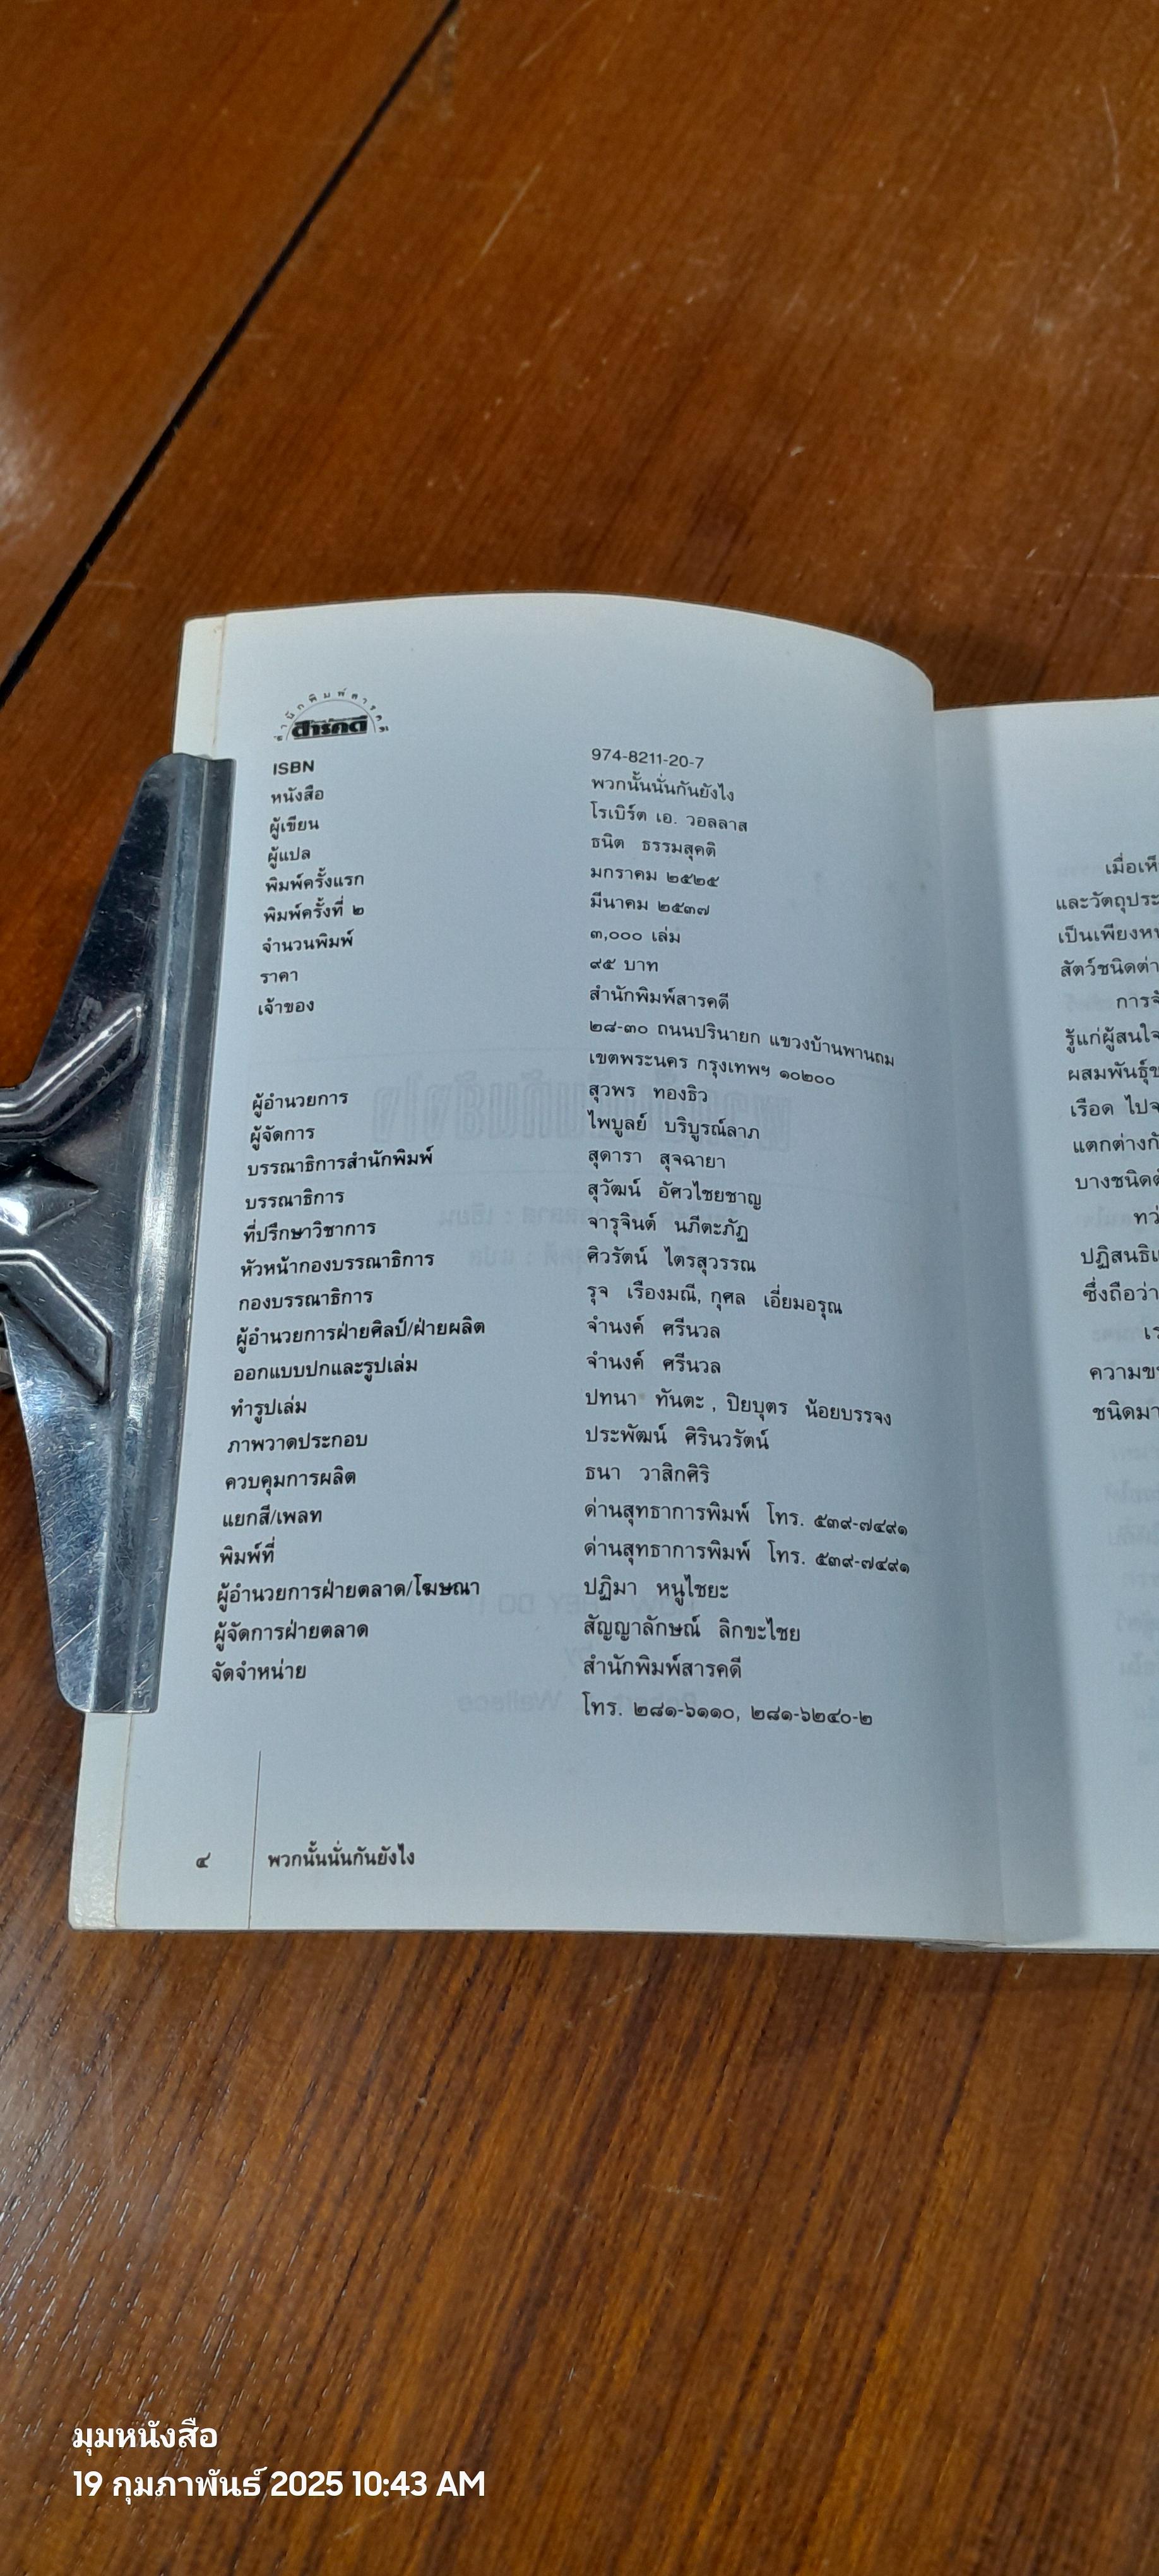 สำนักพิมพ์สารคดี
สารคดี
ISBN 974-8211-20-7
หนังสือ พวกนั้นนั่นกันยังไง
ผู้เขียน โรเบิร์ต เอ. วอลลาส
ผู้แปล ธนิต ธรรมสุคติ
พิมพ์ครั้งแรก มกราคม ๒๕๒๕
พิมพ์ครั้งที่ ๒ มีนาคม ๒๕๓๗
จำนวนพิมพ์ ๓,๐๐๐ เล่ม
ราคา ๙๕ บาท
เจ้าของ สำนักพิมพ์สารคดี
๒๘-๓๐ ถนนปรินายก แขวงบ้านพานถม
เขตพระนคร กรุงเทพฯ ๑๐๒๐๐
ผู้อำนวยการ สุวพร ทองธิว
ผู้จัดการ ไพบูลย์ บริบูรณ์ลาภ
บรรณาธิการสำนักพิมพ์ สุดารา สุจฉายา
บรรณาธิการ สุวัฒน์ อัศวไชยชาญ
ที่ปรึกษาวิชาการ จารุจินต์ นภีตะภัฏ
หัวหน้ากองบรรณาธิการ ศิวรัตน์ ไตรสุวรรณ
กองบรรณาธิการ รุจ เรืองมณี, กุศล เอี่ยมอรุณ
ผู้อำนวยการฝ่ายศิลป์/ฝ่ายผลิต จำนงค์ ศรีนวล
ออกแบบปกและรูปเล่ม จำนงค์ ศรีนวล
ทำรูปเล่ม ปทนา ทันตะ, ปิยบุตร น้อยบรรจง
ภาพวาดประกอบ ประพัฒน์ ศิรินวรัตน์
ควบคุมการผลิต ธนา วาสิกศิริ
แยกสี/เพลท ด่านสุทธาการพิมพ์ โทร. ๕๓๙-๗๔๙๑
พิมพ์ที่ ด่านสุทธาการพิมพ์ โทร. ๕๓๙-๗๔๙๑
ผู้อำนวยการฝ่ายตลาด/โฆษณา ปฏิมา หนูไชยะ
ผู้จัดการฝ่ายตลาด สัญญาลักษณ์ ลิกขะไชย
จัดจำหน่าย สำนักพิมพ์สารคดี
โทร. ๒๘๑-๖๑๑๐, ๒๘๑-๖๒๔๐-๒
๔ พวกนั้นนั่นกันยังไง
เมื่อเห็
และวัตถุประ
เป็นเพียงหน
สัตว์ชนิดต่า
การจั
รู้แก่ผู้สนใจ
ผสมพันธุ์ข
เรือด ไปจ
แตกต่างกั
บางชนิดต้
ทว่
ปฏิสนธิเ
ซึ่งถือว่า
เร
ความขบ
ชนิดมา
มุมหนังสือ
19 กุมภาพันธ์ 2025 10:43 AM